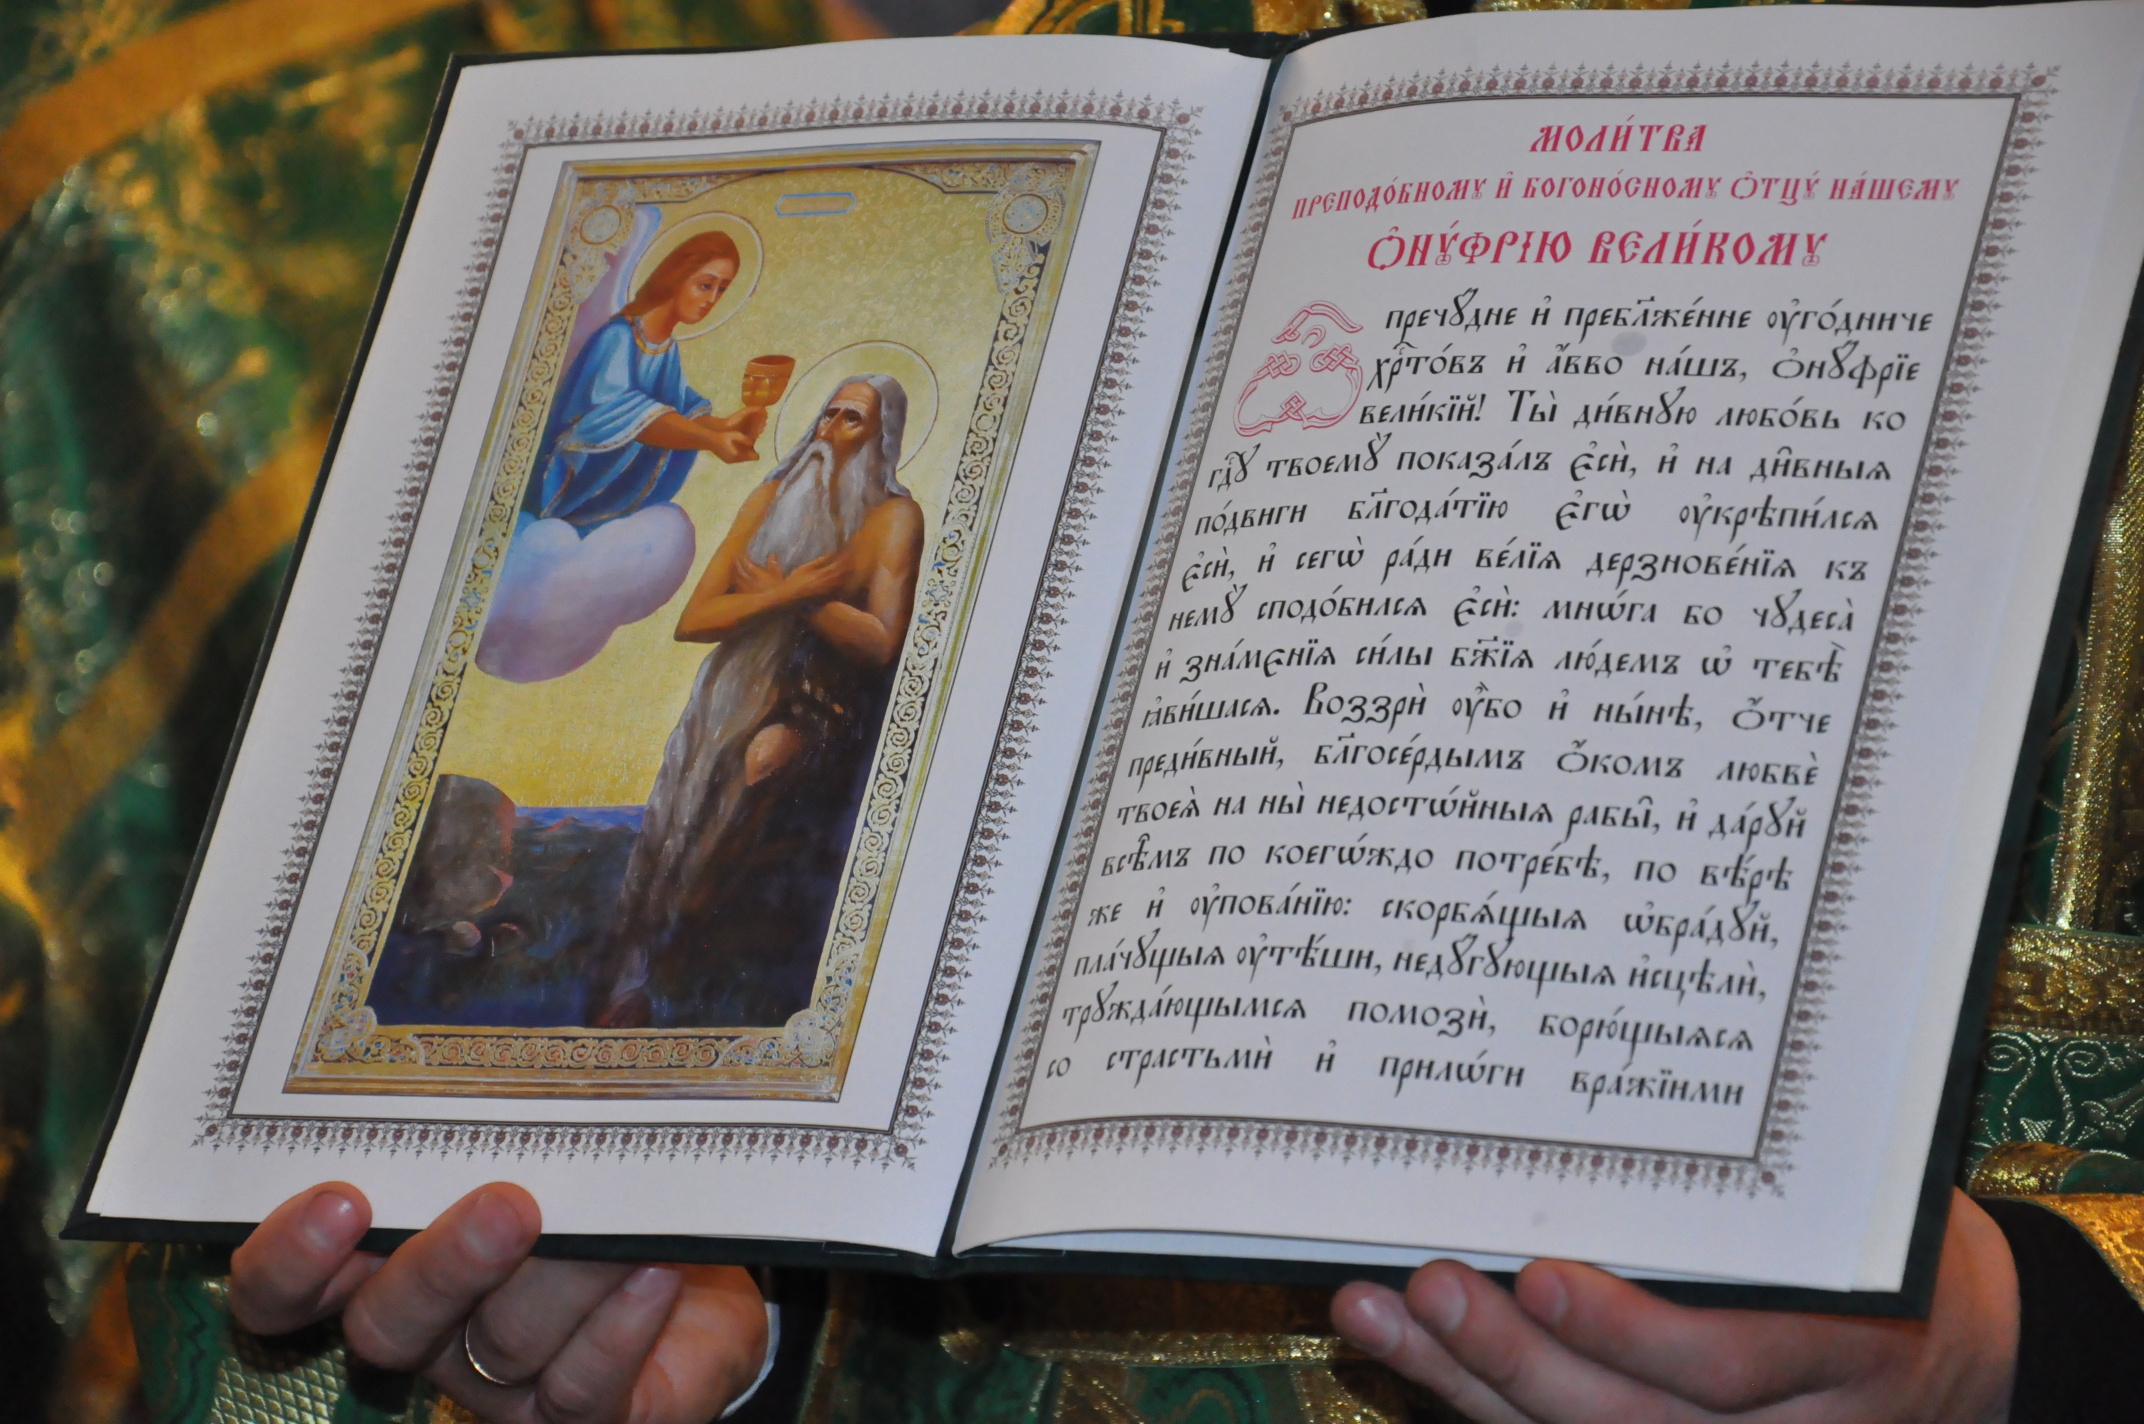 МОЛИ́ТВА
ПРЕПОДО́БНОМꙊ И҆ БОГОНО́СНОМꙊ Ѻ҆ТЦꙊ́ НА́ШЕМꙊ
Ѻ҆НꙊ́ФРІЮ ВЕЛИ́КОМꙊ
Ѽ пречꙋ́дне и҆ пребл҃же́нне оу҆го́дниче
хрⷭ҇то́въ и҆ а҆́вво на́шъ, Ѻ҆нꙋ́фрїе
вели́кїй! Ты̀ ди́внꙋю любо́вь ко
гдⷭ҇ꙋ твоемꙋ̀ показа́лъ є҆сѝ, и҆ на ди̑вныѧ
по́двиги бл҃года́тїю є҆гѡ̀ оу҆крѣпи́лсѧ
є҆сѝ, и҆ сегѡ̀ ра́ди ве́лїѧ дерзнове́нїѧ къ
немꙋ̀ сподо́билсѧ є҆сѝ: мнѡ́га бо чꙋдеса̀
и҆ зна́мєнїѧ си́лы бж҃їѧ лю́демъ ѡ҆ тебѣ̀
ꙗ҆ви́шасѧ. Воззрѝ оу҆̀бо и҆ ны́нѣ, ѻ҆́тче
преди́вный, бл҃госе́рдымъ ѻ҆́комъ любвѐ
твоеѧ̀ на ны̀ недостѡ́йныѧ рабы̑, и҆ да́рꙋй
всѣ̑мъ по коегѡ́ждо потре́бѣ, по вѣ́рѣ
же и҆ оу҆пова́нїю: скорбѧ́щыѧ ѡ҆бра́дꙋй,
пла́чꙋщыѧ оу҆тѣ́ши, недꙋ́гꙋющыѧ и҆сцѣлѝ,
трꙋжда́ющымсѧ помозѝ, борю́щыѧсѧ
со страстьмѝ и҆ прилѡ́ги вра́жїими